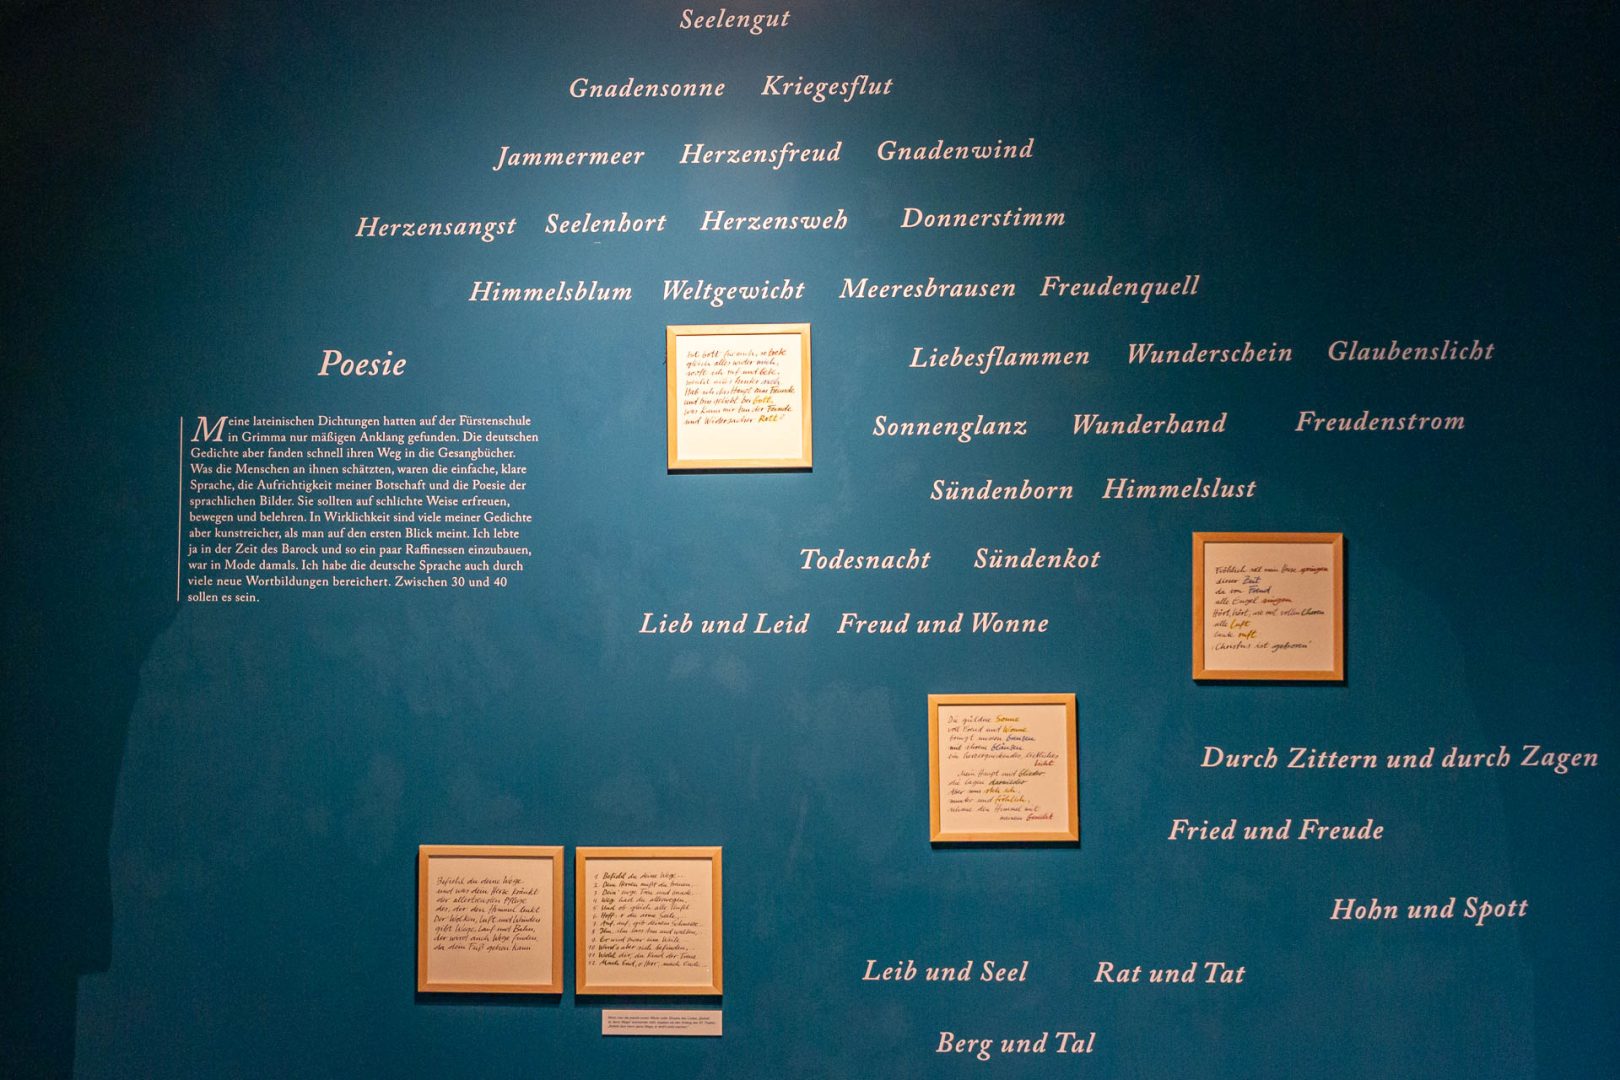 Seelengut
Gnadensonne Kriegesflut
Jammermeer Herzensfreud Gnadenwind
Herzensangst Seelenhort Herzensweh Donnerstimm
Himmelsblum Weltgewicht Meeresbrausen Freudenquell
Liebesflammen Wunderschein Glaubenslicht
Sonnenglanz Wunderhand Freudenstrom
Sündenborn Himmelslust
Todesnacht Sündenkot
Lieb und Leid Freud und Wonne
Durch Zittern und durch Zagen
Fried und Freude
Hohn und Spott
Leib und Seel Rat und Tat
Berg und Tal
Poesie
Meine lateinischen Dichtungen hatten auf der Fürstenschule
in Grimma nur mäßigen Anklang gefunden. Die deutschen
Gedichte aber fanden schnell ihren Weg in die Gesangbücher.
Was die Menschen an ihnen schätzten, waren die einfache, klare
Sprache, die Aufrichtigkeit meiner Botschaft und die Poesie der
sprachlichen Bilder. Sie sollten auf schlichte Weise erfreuen,
bewegen und belehren. In Wirklichkeit sind viele meiner Gedichte
aber kunstreicher, als man auf den ersten Blick meint. Ich lebte
ja in der Zeit des Barock und so ein paar Raffinessen einzubauen,
war in Mode damals. Ich habe die deutsche Sprache auch durch
viele neue Wortbildungen bereichert. Zwischen 30 und 40
sollen es sein.
Ist Gott für mich, so trete
gleich alles wider mich,
sooft ich ruf und bete,
weicht alles hinter sich.
Hab ich das Haupt zum Freunde
und bin geliebt bei Gott,
was kann mir tun der Feinde
und Widersacher Rott?
Fröhlich soll mein Herze springen
dieser Zeit
da vor Freud
alle Engel singen
Hört, hört, wie mit vollen Choren
alle Luft
laute ruft
Christus ist geboren
Die güldne Sonne
voll Freud und Wonne
bringt unsern Grenzen
mit ihrem Glänzen
ein herzerquickendes, liebliches
Licht
Mein Haupt und Glieder
die lagen darnieder
Aber nun steh ich,
munter und fröhlich,
schaue den Himmel mit
meinem Gesicht
Befiehl du deine Wege
und was dein Herze kränkt
der allertreusten Pflege
des, der den Himmel lenkt
Der Wolken, Luft und Winden
gibt Wege, Lauf und Bahn,
der wird auch Wege finden,
da dein Fuß gehen kann
1. Befiehl du deine Wege...
2. Dem Herren mußt du trauen...
3. Dein' ewge Treu und Gnade...
4. Weg hast du allerwegen,
5. Und ob gleich alle Teufel
6. Hoff, o du arme Seele,
7. Auf, auf, gib deinem Schmerze...
8. Ihn, ihn lass tun und walten,
9. Er wird zwar eine Weile
10. Wird's aber sich befinden,...
11. Wohl dir, du Kind der Treue
12. Mach End, o Herr, mach Ende...